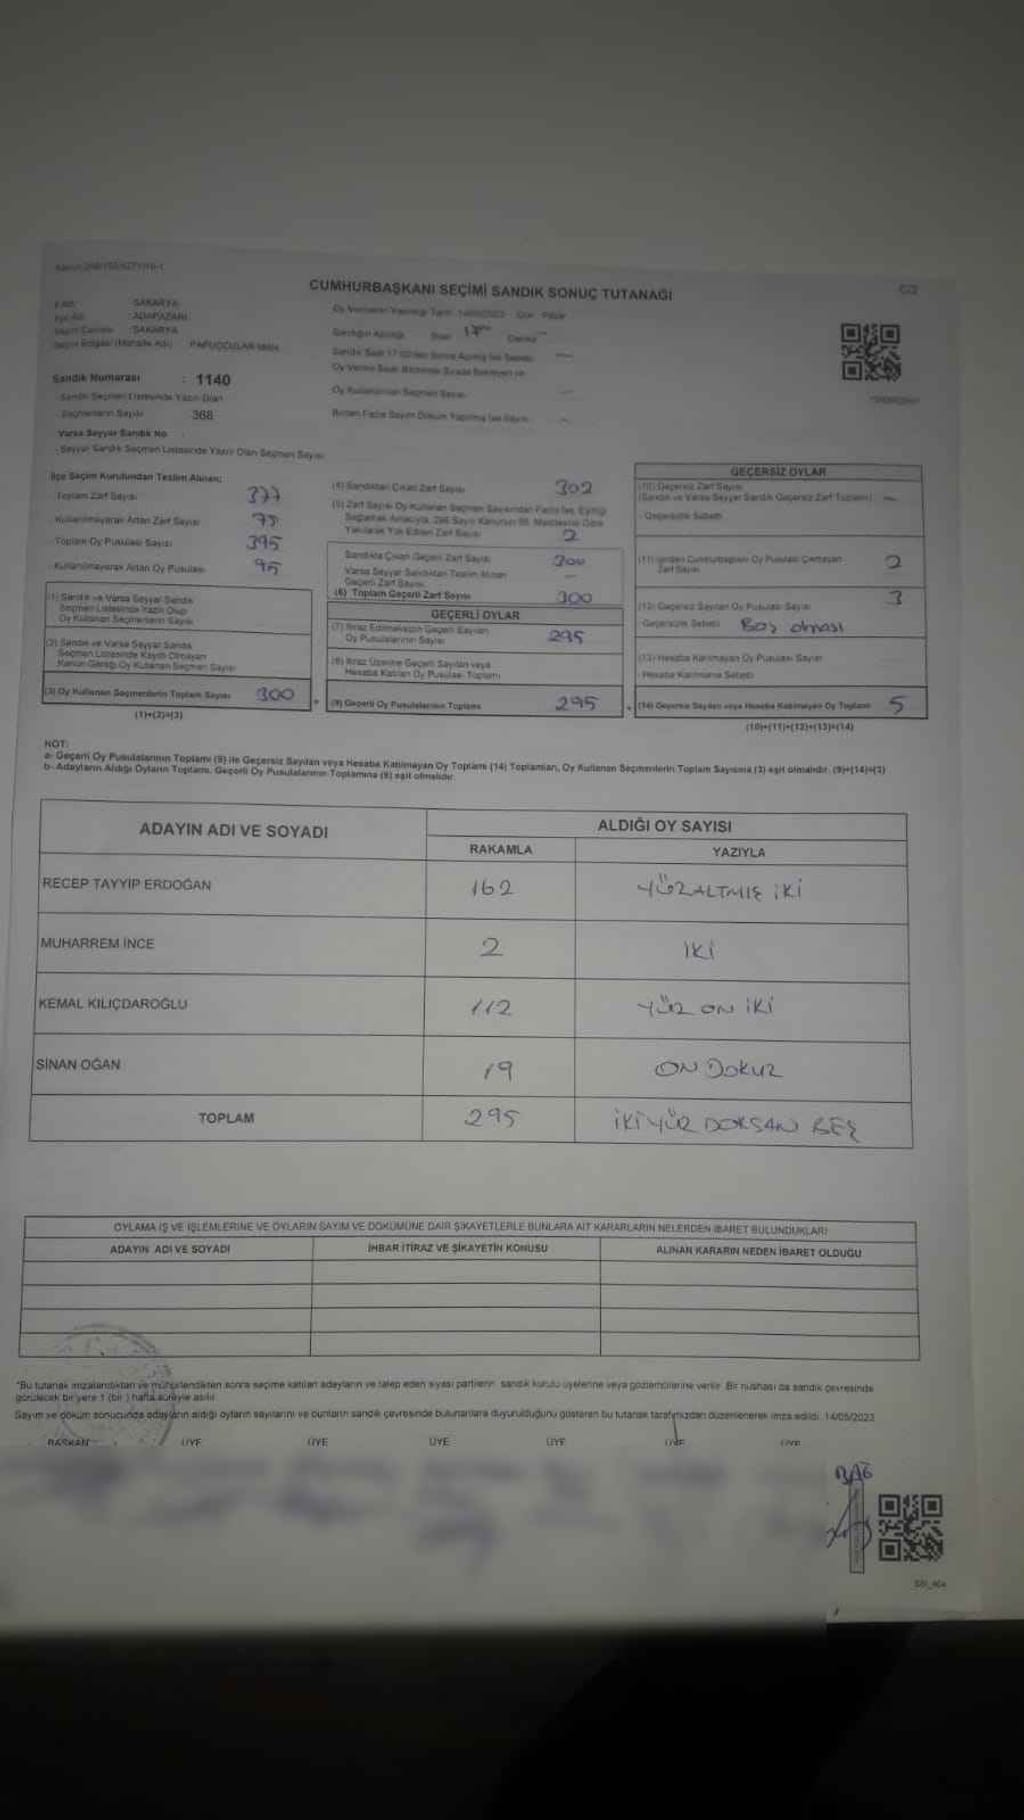 CUMHURBAŞKANI SEÇİMİ SANDIK SONUÇ TUTANAĞI
SAKARYA
ADAPAZARI
SAKARYA
Sandık Numarası : 1140
Sandık Seçmen Listesinde Yazılı Olan
Seçmenlerin Sayısı 368
Varsa Seyyar Sandık No
Seyyar Sandık Seçmen Listesinde Yazılı Olan Seçmen Sayısı
İlçe Seçim Kurulundan Teslim Alınan;
Toplam Zarf Sayısı 377
Kullanılmayarak Artan Zarf Sayısı 75
Toplam Oy Pusulası Sayısı 395
Kullanılmayarak Artan Oy Pusulası 95
(1) Sandık ve Varsa Seyyar Sandık
Seçmen Listesinde Yazılı Olup
Oy Kullanan Seçmenlerin Sayısı
(2) Sandık ve Varsa Seyyar Sandık
Seçmen Listesinde Kayıtlı Olmayan
Kanun Gereği Oy Kullanan Seçmen Sayısı
(3) Oy Kullanan Seçmenlerin Toplam Sayısı 300
(1)+(2)=(3)
(4) Sandıktan Çıkan Zarf Sayısı 302
Yakılarak Yok Edilen Zarf Sayısı 2
Sandıkta Çıkan Geçerli Zarf Sayısı 300
Varsa Seyyar Sandıktan Teslim Alınan
Geçerli Zarf Sayısı
(6) Toplam Geçerli Zarf Sayısı 300
GEÇERLİ OYLAR
(7) İtiraz Edilmeksizin Geçerli Sayılan
Oy Pusulalarının Sayısı 295
(8) İtiraz Üzerine Geçerli Sayılan veya
Hesaba Katılan Oy Pusulası Toplamı
(9) Geçerli Oy Pusulalarının Toplamı 295
GEÇERSİZ OYLAR
(10) Geçersiz Zarf Sayısı
(Sandık ve Varsa Seyyar Sandık Geçersiz Zarf Toplamı)
- Geçersizlik Sebebi
(11) İçinden Cumhurbaşkanı Oy Pusulası Çıkmayan
Zarf Sayısı 2
(12) Geçersiz Sayılan Oy Pusulası Sayısı 3
Geçersizlik Sebebi Boş olması
(13) Hesaba Katılmayan Oy Pusulası Sayısı
- Hesaba Katılmama Sebebi
(14) Geçersiz Sayılan veya Hesaba Katılmayan Oy Toplamı 5
(10)+(11)+(12)+(13)=(14)
NOT:
a- Geçerli Oy Pusulalarının Toplamı (9) ile Geçersiz Sayılan veya Hesaba Katılmayan Oy Toplamı (14) Toplamları, Oy Kullanan Seçmenlerin Toplam Sayısına (3) eşit olmalıdır. (9)+(14)=(3)
b- Adayların Aldığı Oyların Toplamı, Geçerli Oy Pusulalarının Toplamına (9) eşit olmalıdır.
ADAYIN ADI VE SOYADI ALDIĞI OY SAYISI
RAKAMLA YAZIYLA
RECEP TAYYİP ERDOĞAN 162 YÜZALTMIŞ İKİ
MUHARREM İNCE 2 İKİ
KEMAL KILIÇDAROĞLU 112 YÜZ ON İKİ
SİNAN OĞAN 19 ON DOKUZ
TOPLAM 295 İKİYÜZ DOKSAN BEŞ
OYLAMA İŞ VE İŞLEMLERİNE VE OYLARIN SAYIM VE DÖKÜMÜNE DAİR ŞİKAYETLERLE BUNLARA AİT KARARLARIN NELERDEN İBARET BULUNDUKLARI
ADAYIN ADI VE SOYADI İHBAR İTİRAZ VE ŞİKAYETİN KONUSU ALINAN KARARIN NEDEN İBARET OLDUĞU
*Bu tutanak imzalandıktan ve mühürlendikten sonra seçime katılan adayların ve talep eden siyasi partilerin sandık kurulu üyelerine veya gözlemcilerine verilir. Bir nüshası da sandık çevresinde
görülecek bir yere 1 (bir) hafta süreyle asılır.
Sayım ve döküm sonucunda adayların aldığı oyların sayılarını ve bunların sandık çevresinde bulunanlara duyurulduğunu gösteren bu tutanak tarafımızdan düzenlenerek imza edildi. 14/05/2023
BAŞKAN ÜYE ÜYE ÜYE ÜYE ÜYE ÜYE